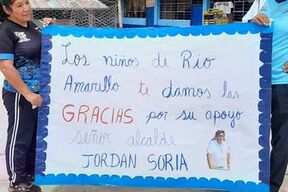 Los niños de Rio
Amarillo te damos las
GRACIAS por su apoyo
señor alcalde
JORDAN SORIA